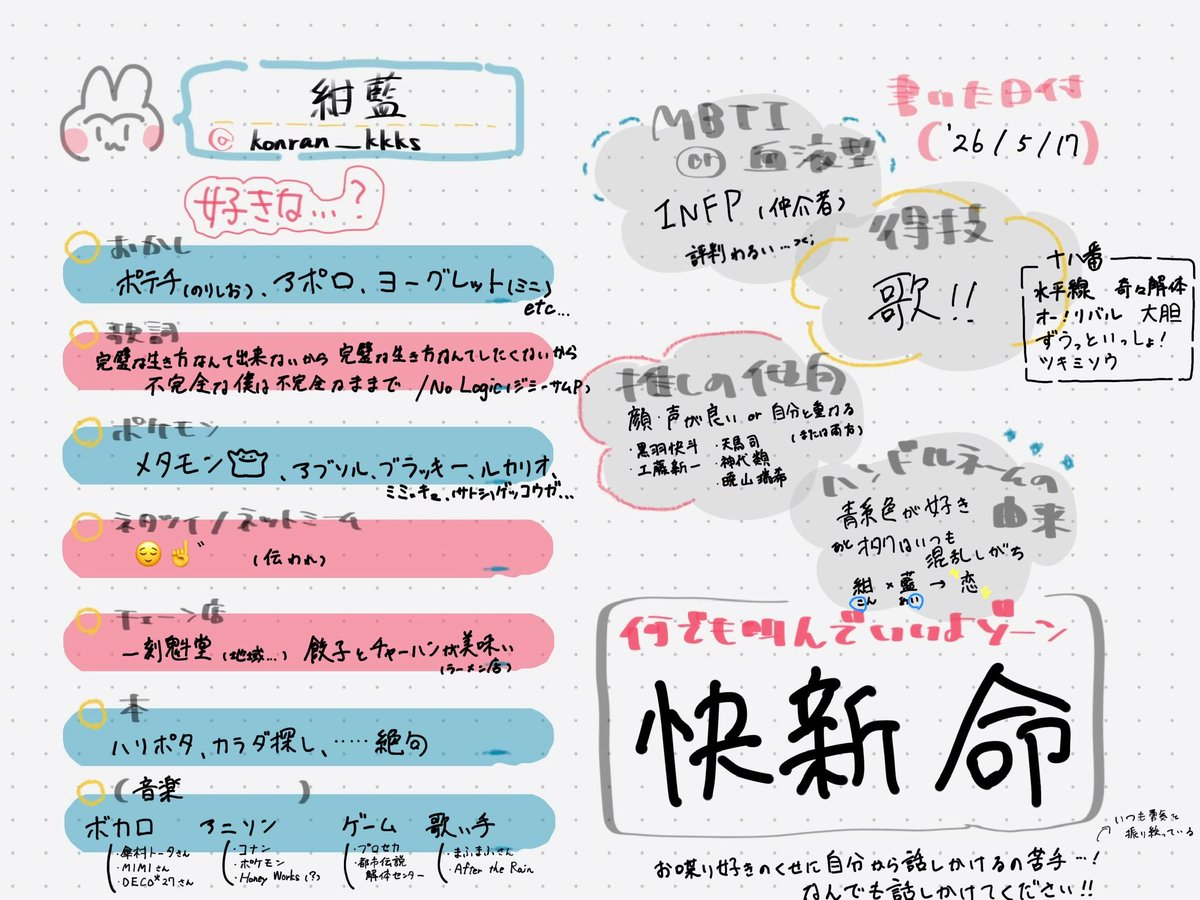 紺藍
@ konran_kkks
好きな…?
おかし
ポテチ(のりしお)、アポロ、ヨーグレット(ミニ)
etc...
歌詞
完璧な生き方なんて出来ないから 完璧な生き方なんてしたくないから
不完全な僕は不完全なままで /No Logic(ジミーサムP)
ポケモン
メタモン、アブソル、ブラッキー、ルカリオ、
ミミッキュ、(サトシ)ゲッコウガ…
ネタツイ/ネットミーム
😌☝️゛ (伝われ)
チェーン店
一刻魁堂(地域…) 餃子とチャーハンが美味い
(ラーメン店)
本
ハリポタ、カラダ探し、……絶句
(音楽)
ボカロ
・傘村トータさん
・MIMIさん
・DECO*27さん
アニソン
・コナン
・ポケモン
・Honey Works(?)
ゲーム
・プロセカ
・都市伝説
解体センター
歌い手
・まふまふさん
・After the Rain
MBTI
or 血液型
INFP(仲介者)
評判わるい…><;
書いた日付
('26/5/17)
得技
歌!!
十八番
水平線 奇々解体
オー!リバル 大胆
ずうっといっしょ!
ツキミソウ
推しの傾向
顔・声が良い or 自分と重ねる
(または両方)
・黒羽快斗
・工藤新一
・天馬司
・神代類
・暁山瑞希
ハンドルネームの
由来
青系色が好き
あと オタクはいつも
混乱しがち
紺×藍→恋
こん あい
何でも叫んでいいよゾーン
快新 命
いつも
振り絞っている
お喋り好きのくせに自分から話しかけるの苦手…!
なんでも話しかけてください!!